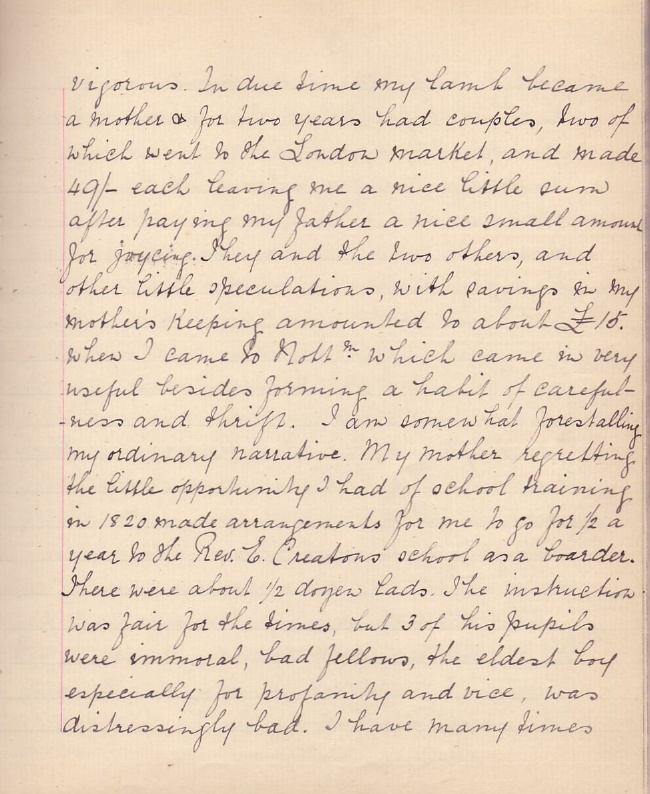 vigorous. In due time my lamb became
a mother & for two years had couples, two of
which went to the London market, and made
49/- each leaving me a nice little sum
after paying my father a nice small amount
for joycing. They and the two others, and
other little speculations, with savings in my
mother's keeping amounted to about £15.
when I came to Nottm which came in very
useful besides forming a habit of careful-
-ness and thrift. I am somewhat forestalling
my ordinary narrative. My mother regretting
the little opportunity I had of school training
in 1820 made arrangements for me to go for 1/2 a
year to the Rev. E. Creatons school as a boarder.
There were about 1/2 dozen lads. The instruction
was fair for the times, but 3 of his pupils
were immoral, bad fellows, the eldest boy
especially for profanity and vice, was
distressingly bad. I have many times